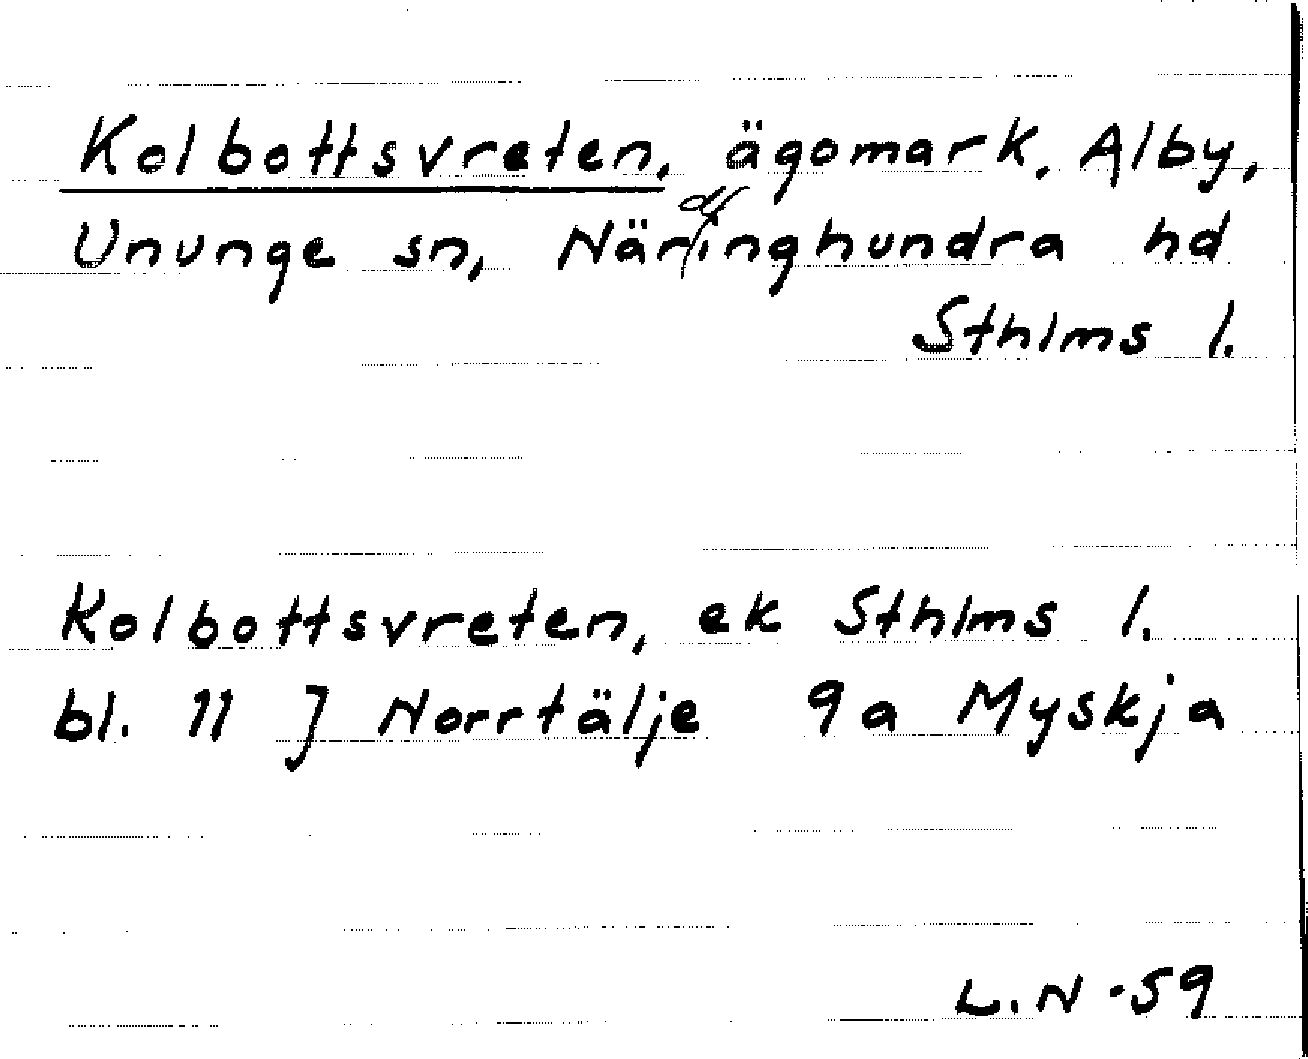 Kolbottsvreten, ägomark, Alby,
Ununge sn, Närdinghundra hd
Sthlms l.
Kolbottsvreten, ek Sthlms l.
bl. 11 J Norrtälje 9a Myskja
L.N -59